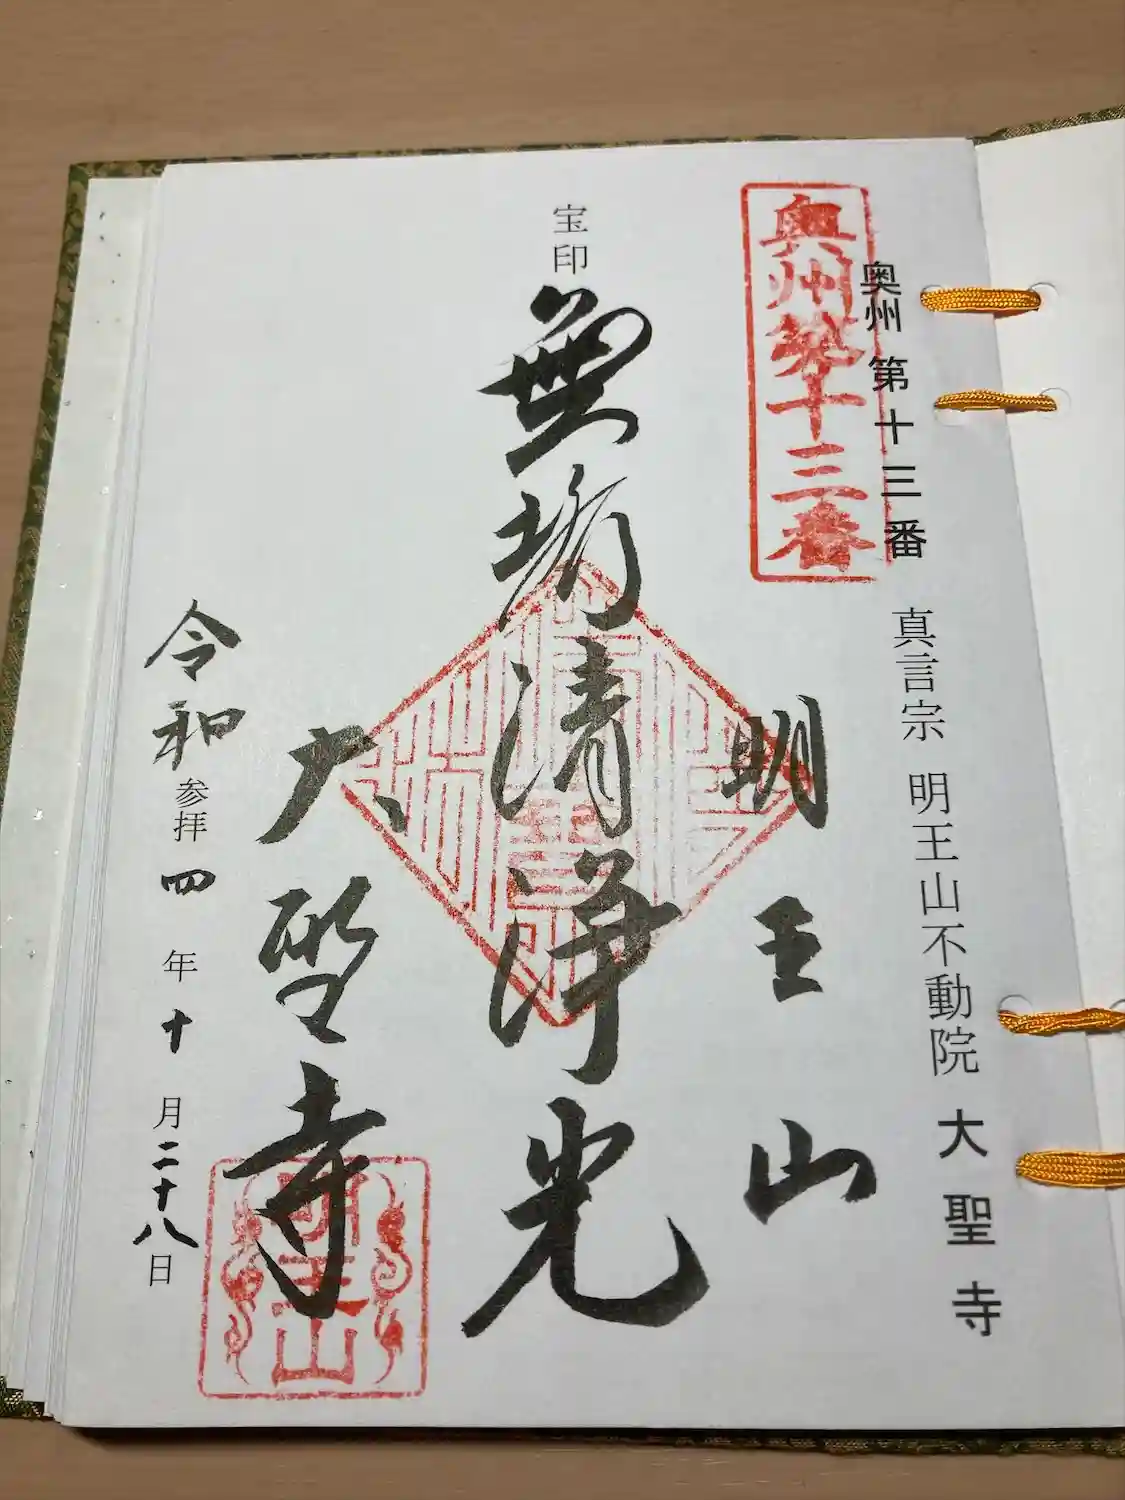 奥州第十三番
奥州 第十三番 真言宗 明王山不動院 大聖寺
明王山
宝印
無垢清浄光
大聖寺
明王山
令和 参拝 四年 十月 二十八日